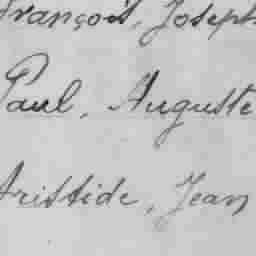 François, Joseph
Paul, Auguste
Aristide, Jean